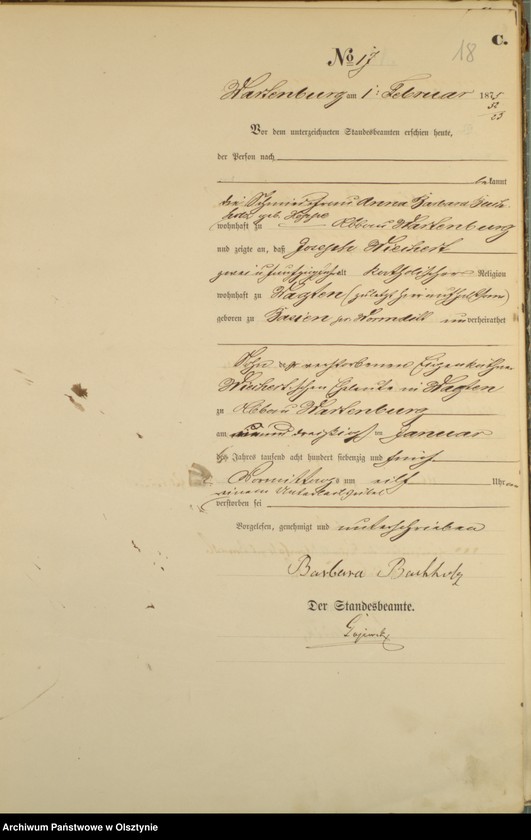 C.
No 17
18
Wartenburg am 1. Februar 1875
52
23
Vor dem unterzeichneten Standesbeamten erschien heute,
der Person nach
bekannt
die Schmiedsfrau Anna Barbara Buch
holz geb. Hoppe
wohnhaft zu Abbau Wartenburg
und zeigte an, daß Joseph Wichert
zwei u fünfzig Jahre alt katholischer Religion
wohnhaft zu Wagten (zuletzt hier aufhaltsam)
geboren zu bei Wormditt unverheirathet
Sohn der verstorbenen Eigenkäthner
Wichertschen Eheleute in Wagten
zu Abbau Wartenburg
am dreißig ten Januar
des Jahres tausend acht hundert siebenzig und fünf
Vormittags um eilf Uhr an
einem
verstorben sei
Vorgelesen, genehmigt und unterschrieben
Barbara Buchholz
Der Standesbeamte.
Archiwum Państwowe w Olsztynie